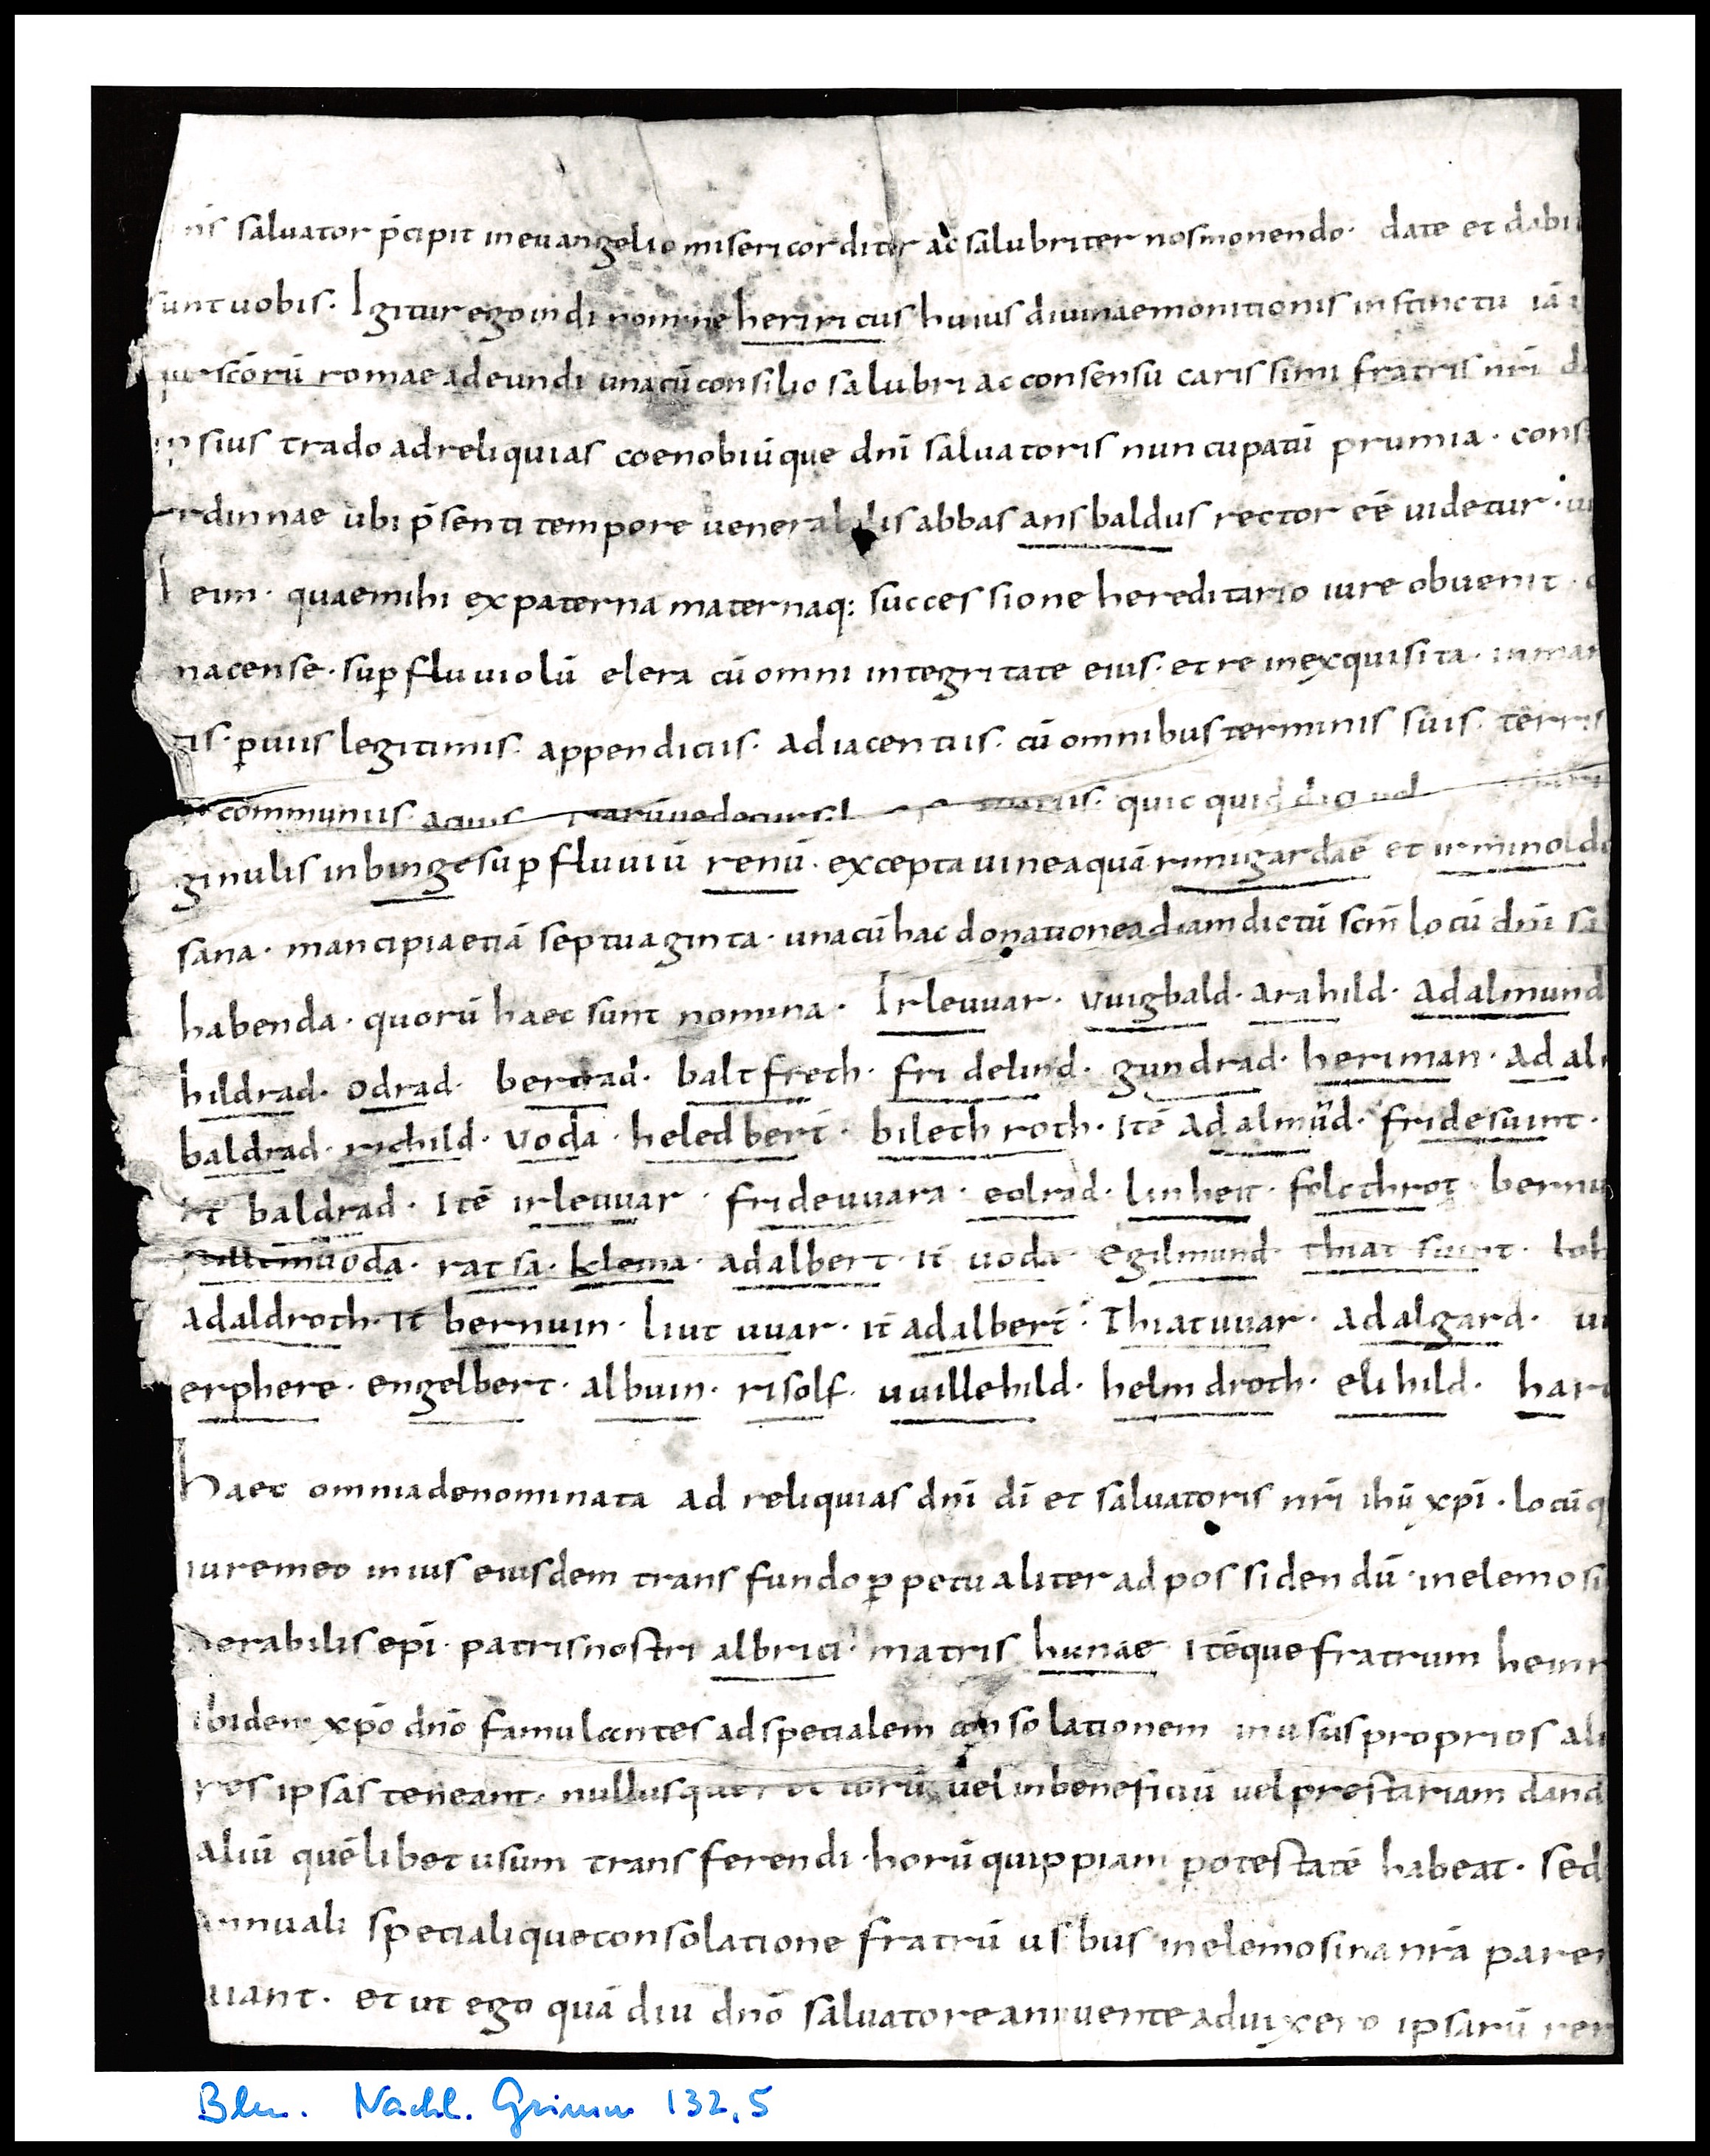 nr̄s saluator p̄cipit in euangelio misericorditer ac salubriter nos monendo· date et dabi
sunt uobis· Igitur ego in dī nomine heriricus huius diuinae monitionis instinctu iā
sc̄orū romae adeundi una cū consilio salubri ac consensu carissimi fratris nr̄i
ipsius trado ad reliquias coenobiūque dn̄i saluatoris nuncupatū prumia· cons
ardinnae ubi p̄senti tempore uenerabilis abbas ansbaldus rector eē uidetur·
heim· quae mihi ex paterna maternaq: successione hereditario iure obuenit·
nacense· sup̱ fluuiolū elera cū omni integritate eius· et re inexquisita· in man
tis· p̱uiis legitimis· appendiciis· adiacentiis· cū omnibus terminis suis· terris
communiis· aquis quicquid dici uel
ginulis in binge sup̱ fluuiū renū· excepta uinea quā rimigardae et irminoldo
sana· mancipia etiā septuaginta· una cū hac donatione ad iam dictū sc̄m locū dn̄i sa
habenda· quorū haec sunt nomina· Irleuuar· vuigbald· arahild· adalmund
hildrad· odrad· bertrad· baltfreth· fridelind· gundrad· heriman· adali
baldrad· richild· voda· heledbert· bilethroth· itē adalmūd· fridesuint·
it baldrad· itē irleuuar· frideuuara· eolrad· linheit· folcthrot· bernu
uoda· ratsa· klema· adalbert· it̄ uoda· egilmund· thiatsuint·
adaldroth· it̄ bernuin· liutuuar· it̄ adalbert· thiatuuar· adalgard·
erphere· engelbert· albuin· risolf· uuillehild· helmdroth· elihild· har
haec omnia denominata ad reliquias dn̄i dī et saluatoris nr̄i ih̄u xp̄i· locū q
iure meo in ius eiusdem transfundo p̱petualiter ad possidendū· in elemosi
nerabilis ep̄i· patris nostri albrici· matris hunae· itēque fratrum heinr
ibidem xp̄o dn̄o famulantes ad specialem consolationem in usus proprios ali
res ipsas teneant· nullusque rectorū uel in beneficiū uel prestariam dand
aliū quēlibet usum transferendi· horū quippiam potestatē habeat· sed
annuali specialique consolatione fratrū usibus in elemosina nr̄a paren
uiant· et ut ego quā diu dn̄o saluatore annuente aduixero ipsarū rer
Bln. Nachl. Grimm 132,5